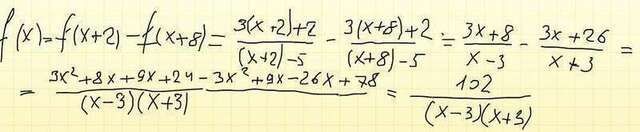 f(x)=f(x+2)-f(x+8)= \frac{3(x+2)+2}{(x+2)-5} - \frac{3(x+8)+2}{(x+8)-5} = \frac{3x+8}{x-3} - \frac{3x+26}{x+3} =
= \frac{3x^2+8x+9x+24-3x^2+9x-26x+78}{(x-3)(x+3)} = \frac{102}{(x-3)(x+3)}